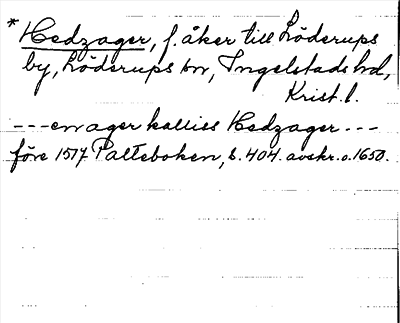 * Hedzager, f. åker till Löderups
by, Löderups sn, Ingelstads hd,
Krist. l.
---en ager kalliss Hedzager---
före 1517 Palteboken, s. 404. avskr. o. 1650.